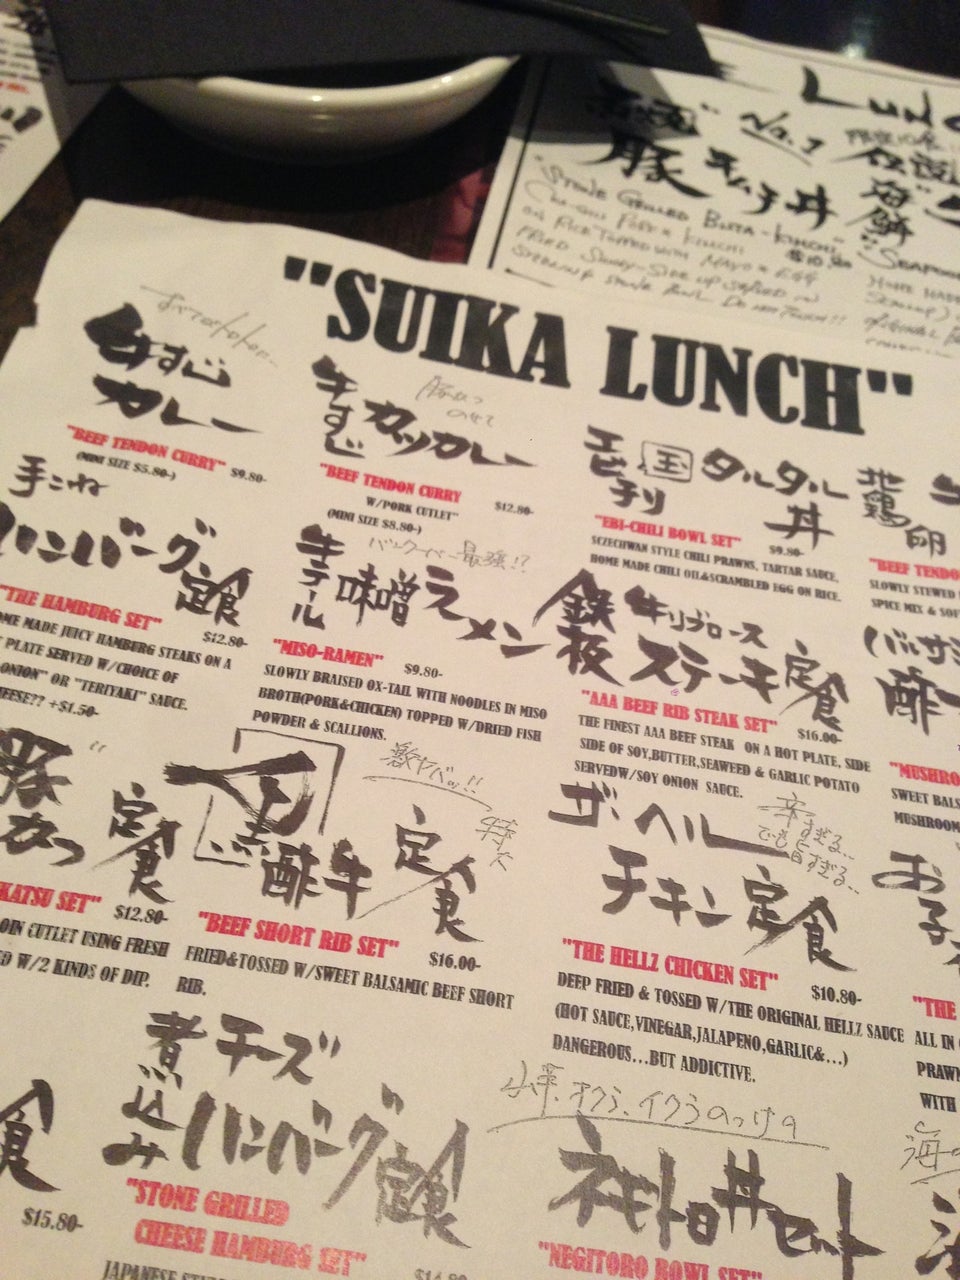 LUNC
No.1
豚キムチ丼
"STONE GRILLED BUTA-KIMCHI"
"SUIKA LUNCH"
牛すじ
カレー
"BEEF TENDON CURRY" $9.80-
(MINI SIZE $5.80-)
牛すじカツカレー
"BEEF TENDON CURRY
W/PORK CUTLET" $12.80-
(MINI SIZE $8.80-)
タルタル丼
"EBI-CHILI BOWL SET" $9.80-
SZECHWAN STYLE CHILI PRAWNS, TARTAR SAUCE,
HOME MADE CHILI OIL&SCRAMBLED EGG ON RICE.
地鶏卵
"BEEF TENDO
SLOWLY STEWED
SPICE MIX & SOF
手こね
ハンバーグ定食
"THE HAMBURG SET" $12.80-
OME MADE JUICY HAMBURG STEAKS ON A
PLATE SERVED W/CHOICE OF
ONION" OR "TERIYAKI" SAUCE.
EESE?? +$1.50-
牛テール味噌ラーメン
"MISO-RAMEN" $9.80-
SLOWLY BRAISED OX-TAIL WITH NOODLES IN MISO
BROTH(PORK&CHICKEN) TOPPED W/DRIED FISH
POWDER & SCALLIONS.
鉄板牛リブロースステーキ定食
"AAA BEEF RIB STEAK SET" $16.00-
THE FINEST AAA BEEF STEAK ON A HOT PLATE, SIDE
SIDE OF SOY,BUTTER,SEAWEED & GARLIC POTATO
SERVEDW/SOY ONION SAUCE.
バルサミ
酢
"MUSHRO
SWEET BALS
MUSHROOM
豚かつ定食
KATSU SET" $12.80-
OIN CUTLET USING FRESH
D W/2 KINDS OF DIP.
激ヤバッ!!
黒酢牛定食
"BEEF SHORT RIB SET" $16.00-
FRIED&TOSSED W/SWEET BALSAMIC BEEF SHORT
RIB.
ザ・ヘル
チキン定食
辛すぎる..
でも旨すぎる..
"THE HELLZ CHICKEN SET" $10.80-
DEEP FRIED & TOSSED W/THE ORIGINAL HELLZ SAUCE
(HOT SAUCE,VINEGAR,JALAPENO,GARLIC&...)
DANGEROUS...BUT ADDICTIVE.
お子
"THE
ALL IN
PRAWN
WITH
食
$15.80-
チーズ
煮込みハンバーグ定食
"STONE GRILLED
CHEESE HAMBURG SET"
$14.80-
山芋、オクラ、イクラのっけの
ネギトロ丼セット
"NEGITORO BOWL SET"